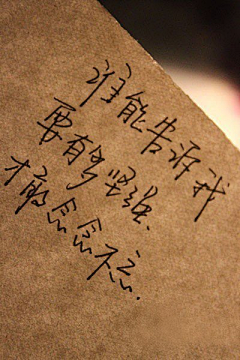 谁能告诉我
要有多坚强
才敢念念不忘.